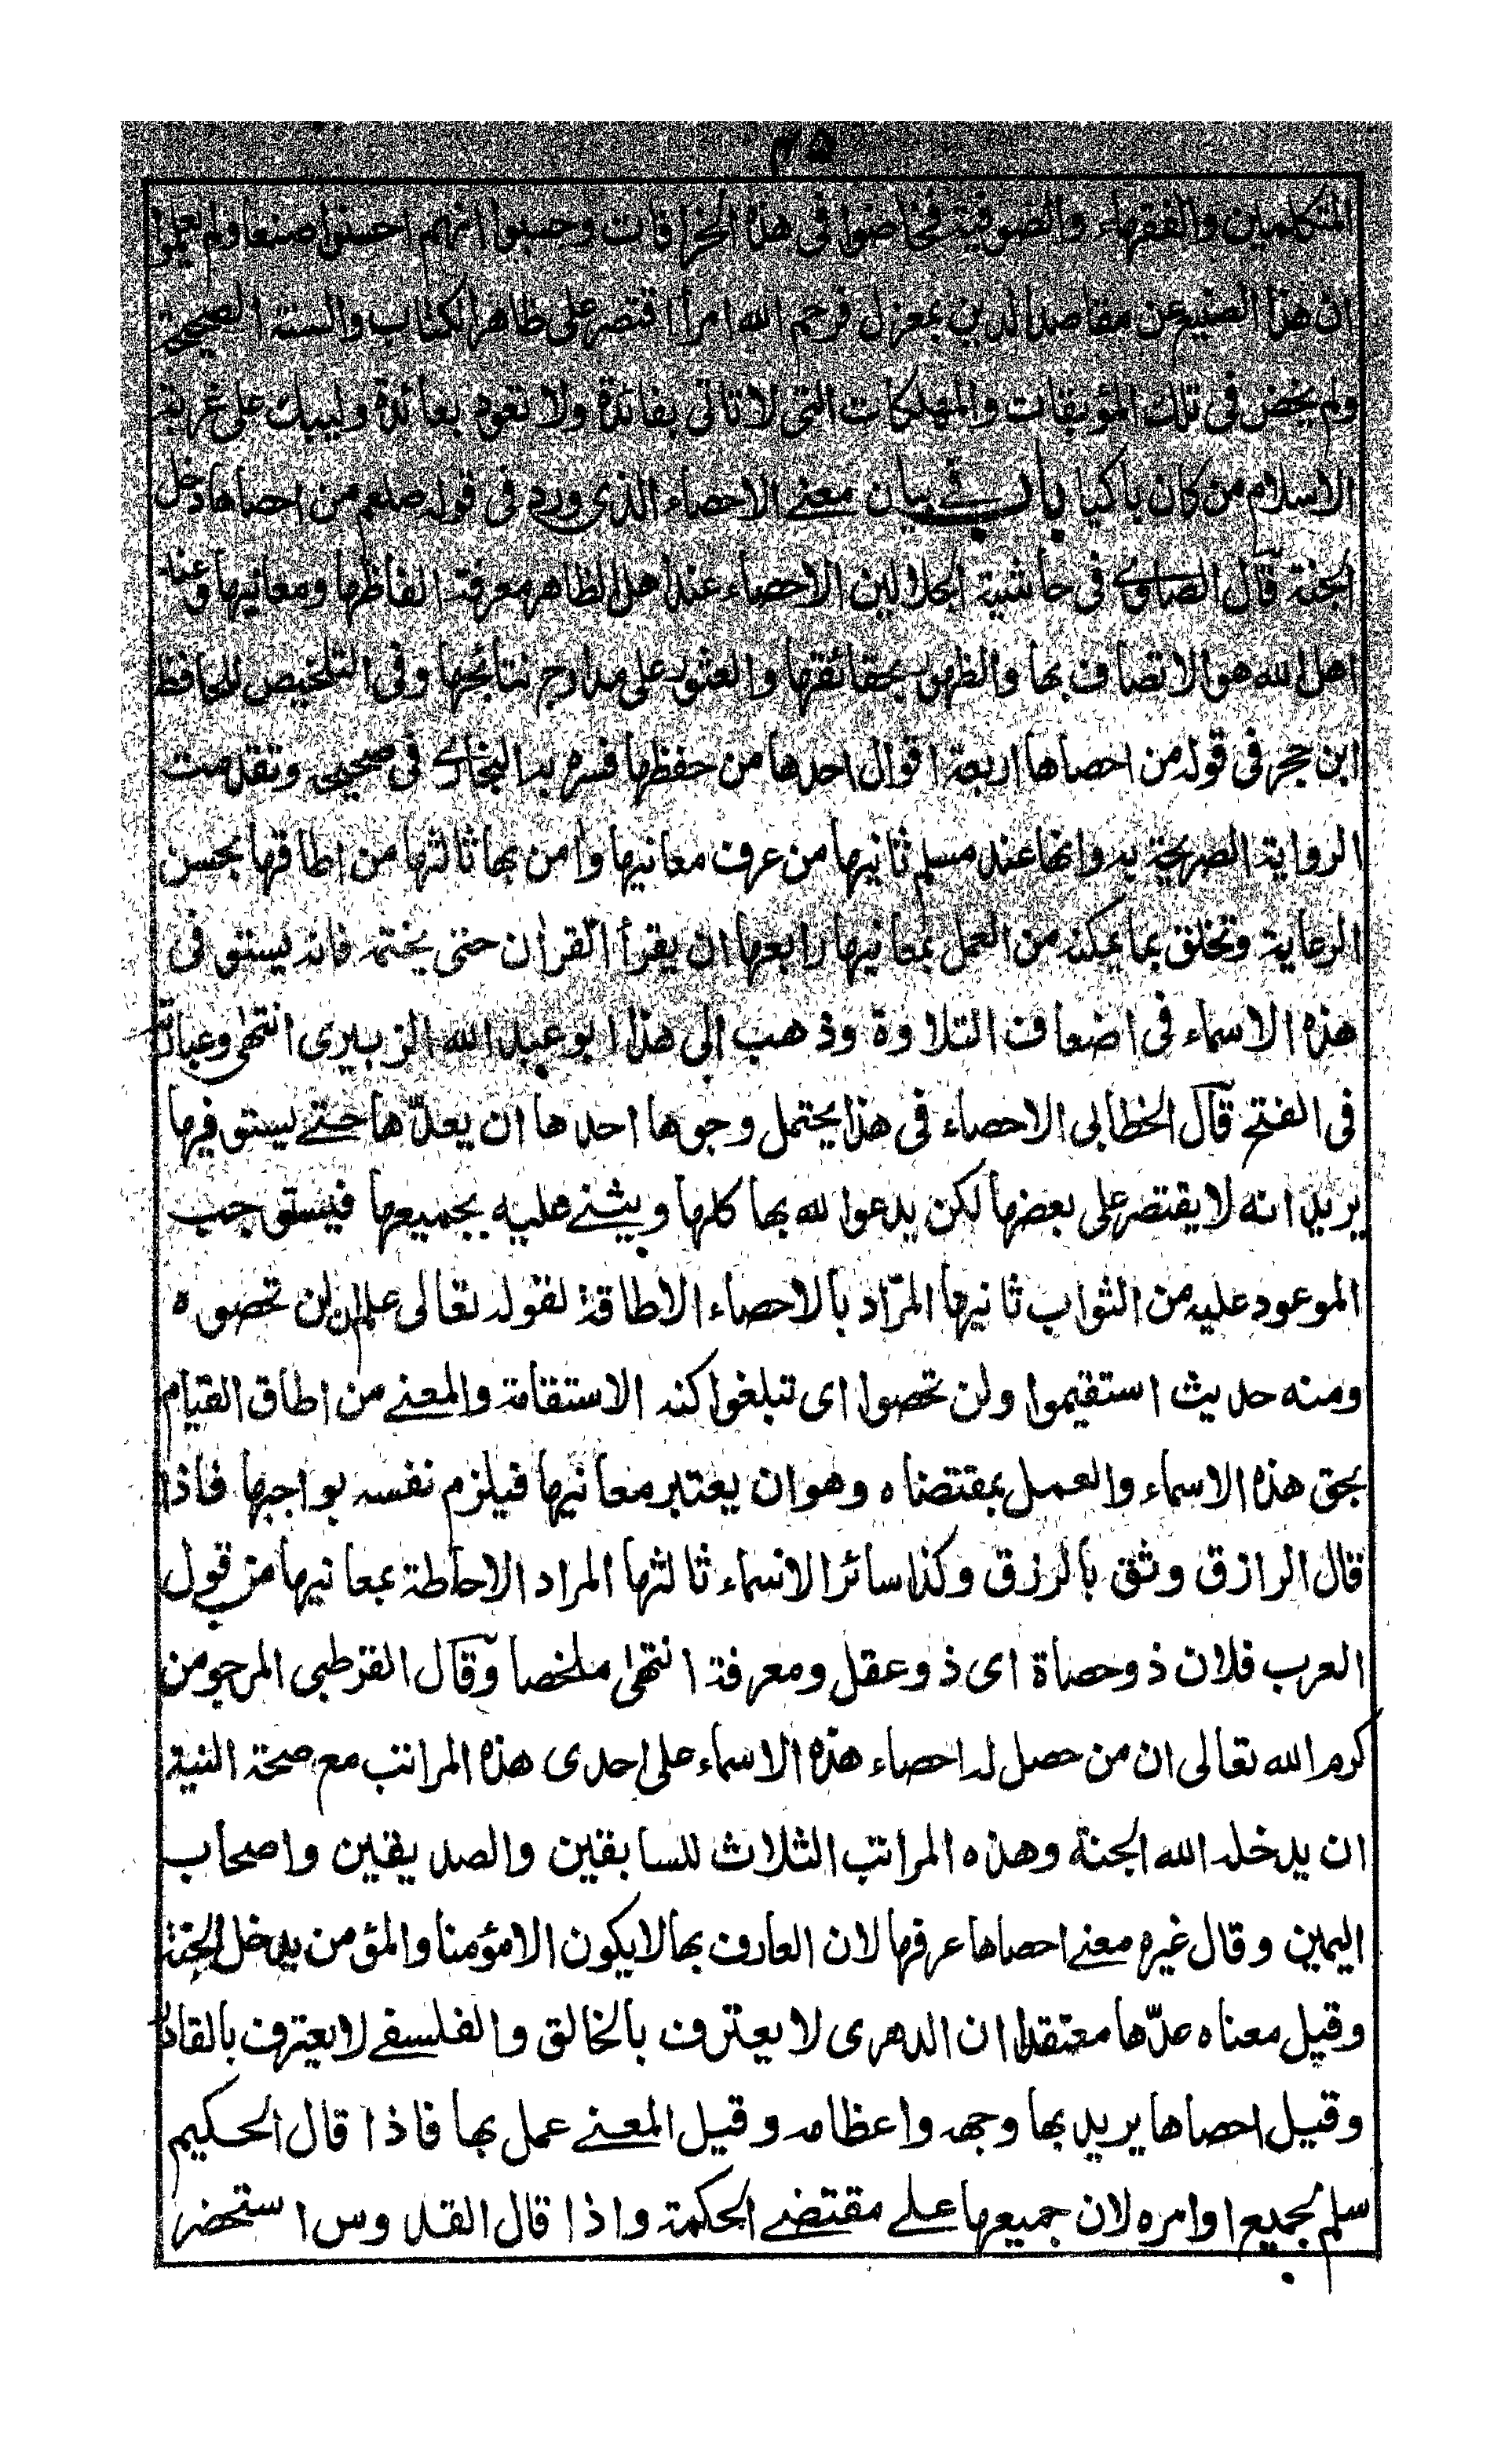 ٢٥
المتكلمين والفقهاء والصوفية فخاضوا فى هذه الخرافات وحسبوا انهم احسنوا صنعا ولم يعلموا
ان هذا الصنيع عن مقاصد الدين بمعزل فرحم الله امرأ اقتصر على ظاهر الكتاب والسنة الصحيحة
ولم يخض فى تلك المؤبقات والمهلكات التى لا تاتى بفائدة ولا تعود بعائدة وليبك على غربة
الاسلام من كان باكيا باب فے بيان معنے الاحصاء الذى ورد فى قوله صلعم من احصاها دخل
الجنة قال الصاوے فى حاشية الجلالين الاحصاء عند اهل الظاهر معرفة الفاظها ومعانيها وعند
اهل الله هو الاتصاف بها والظهور بحقائقها والعثور على مدارج نتائجها وفى التلخيص للحافظ
ابن حجر فى قوله من احصاها اربعة اقوال احدها من حفظها فسره به البخارے فى صحيحه وتقدمت
الرواية الصريحة به وانها عند مسلم ثانيها من عرف معانيها وامن بها ثالثها من اطاقها بحسن
الرعاية وتخلق بما يمكنه من العمل بمعانيها رابعها ان يقرأ القرأن حتى يختمه فانه يستوفى
هذه الاسماء فى اضعاف التلاوة وذهب الى هذا ابو عبد الله الزبيرى انتهى وعبارته
فى الفتح قال الخطابى الاحصاء فى هذا يحتمل وجوها احدها ان يعدّها حتے يستوفيها
يريد انه لا يقتصر على بعضها لكن يدعوا لله بها كلها ويثنے عليه بجميعها فيستوجب
الموعود عليه من الثواب ثانيها المراد بالاحصاء الاطاقة لقوله تعالى علم ان لن تحصوه
ومنه حديث استقيموا ولن تحصوا اى تبلغوا كنه الاستقامة والمعنے من اطاق القيام
بحق هذه الاسماء والعمل بمقتضاه وهو ان يعتبر معانيها فيلزم نفسه بواجبها فاذا
قال الرازق وثق بالرزق وكذا سائر الاسماء ثالثها المراد الاحاطة بمعانيها من قول
العرب فلان ذوحصاة اى ذو عقل ومعرفة انتهى ملخصا وقال القرطبى المرجو من
كرم الله تعالى ان من حصل له احصاء هذه الاسماء على احدى هذه المراتب مع صحة النية
ان يدخله الله الجنة وهذه المراتب الثلاث للسابقين والصديقين واصحاب
اليمين وقال غيره معنے احصاها عرفها لان العارف بها لا يكون الا مؤمنا والمؤمن يدخل الجنة
وقيل معناه عدّها معتقدا ان الدهرى لا يعترف بالخالق والفلسفے لا يعترف بالقادر
وقيل احصاها يريد بها وجهه واعظامه وقيل المعنے عمل بها فاذا قال الحكيم
سلم لجميع اوامره لان جميعها علے مقتضے الحكمة واذا قال القدوس استحضر